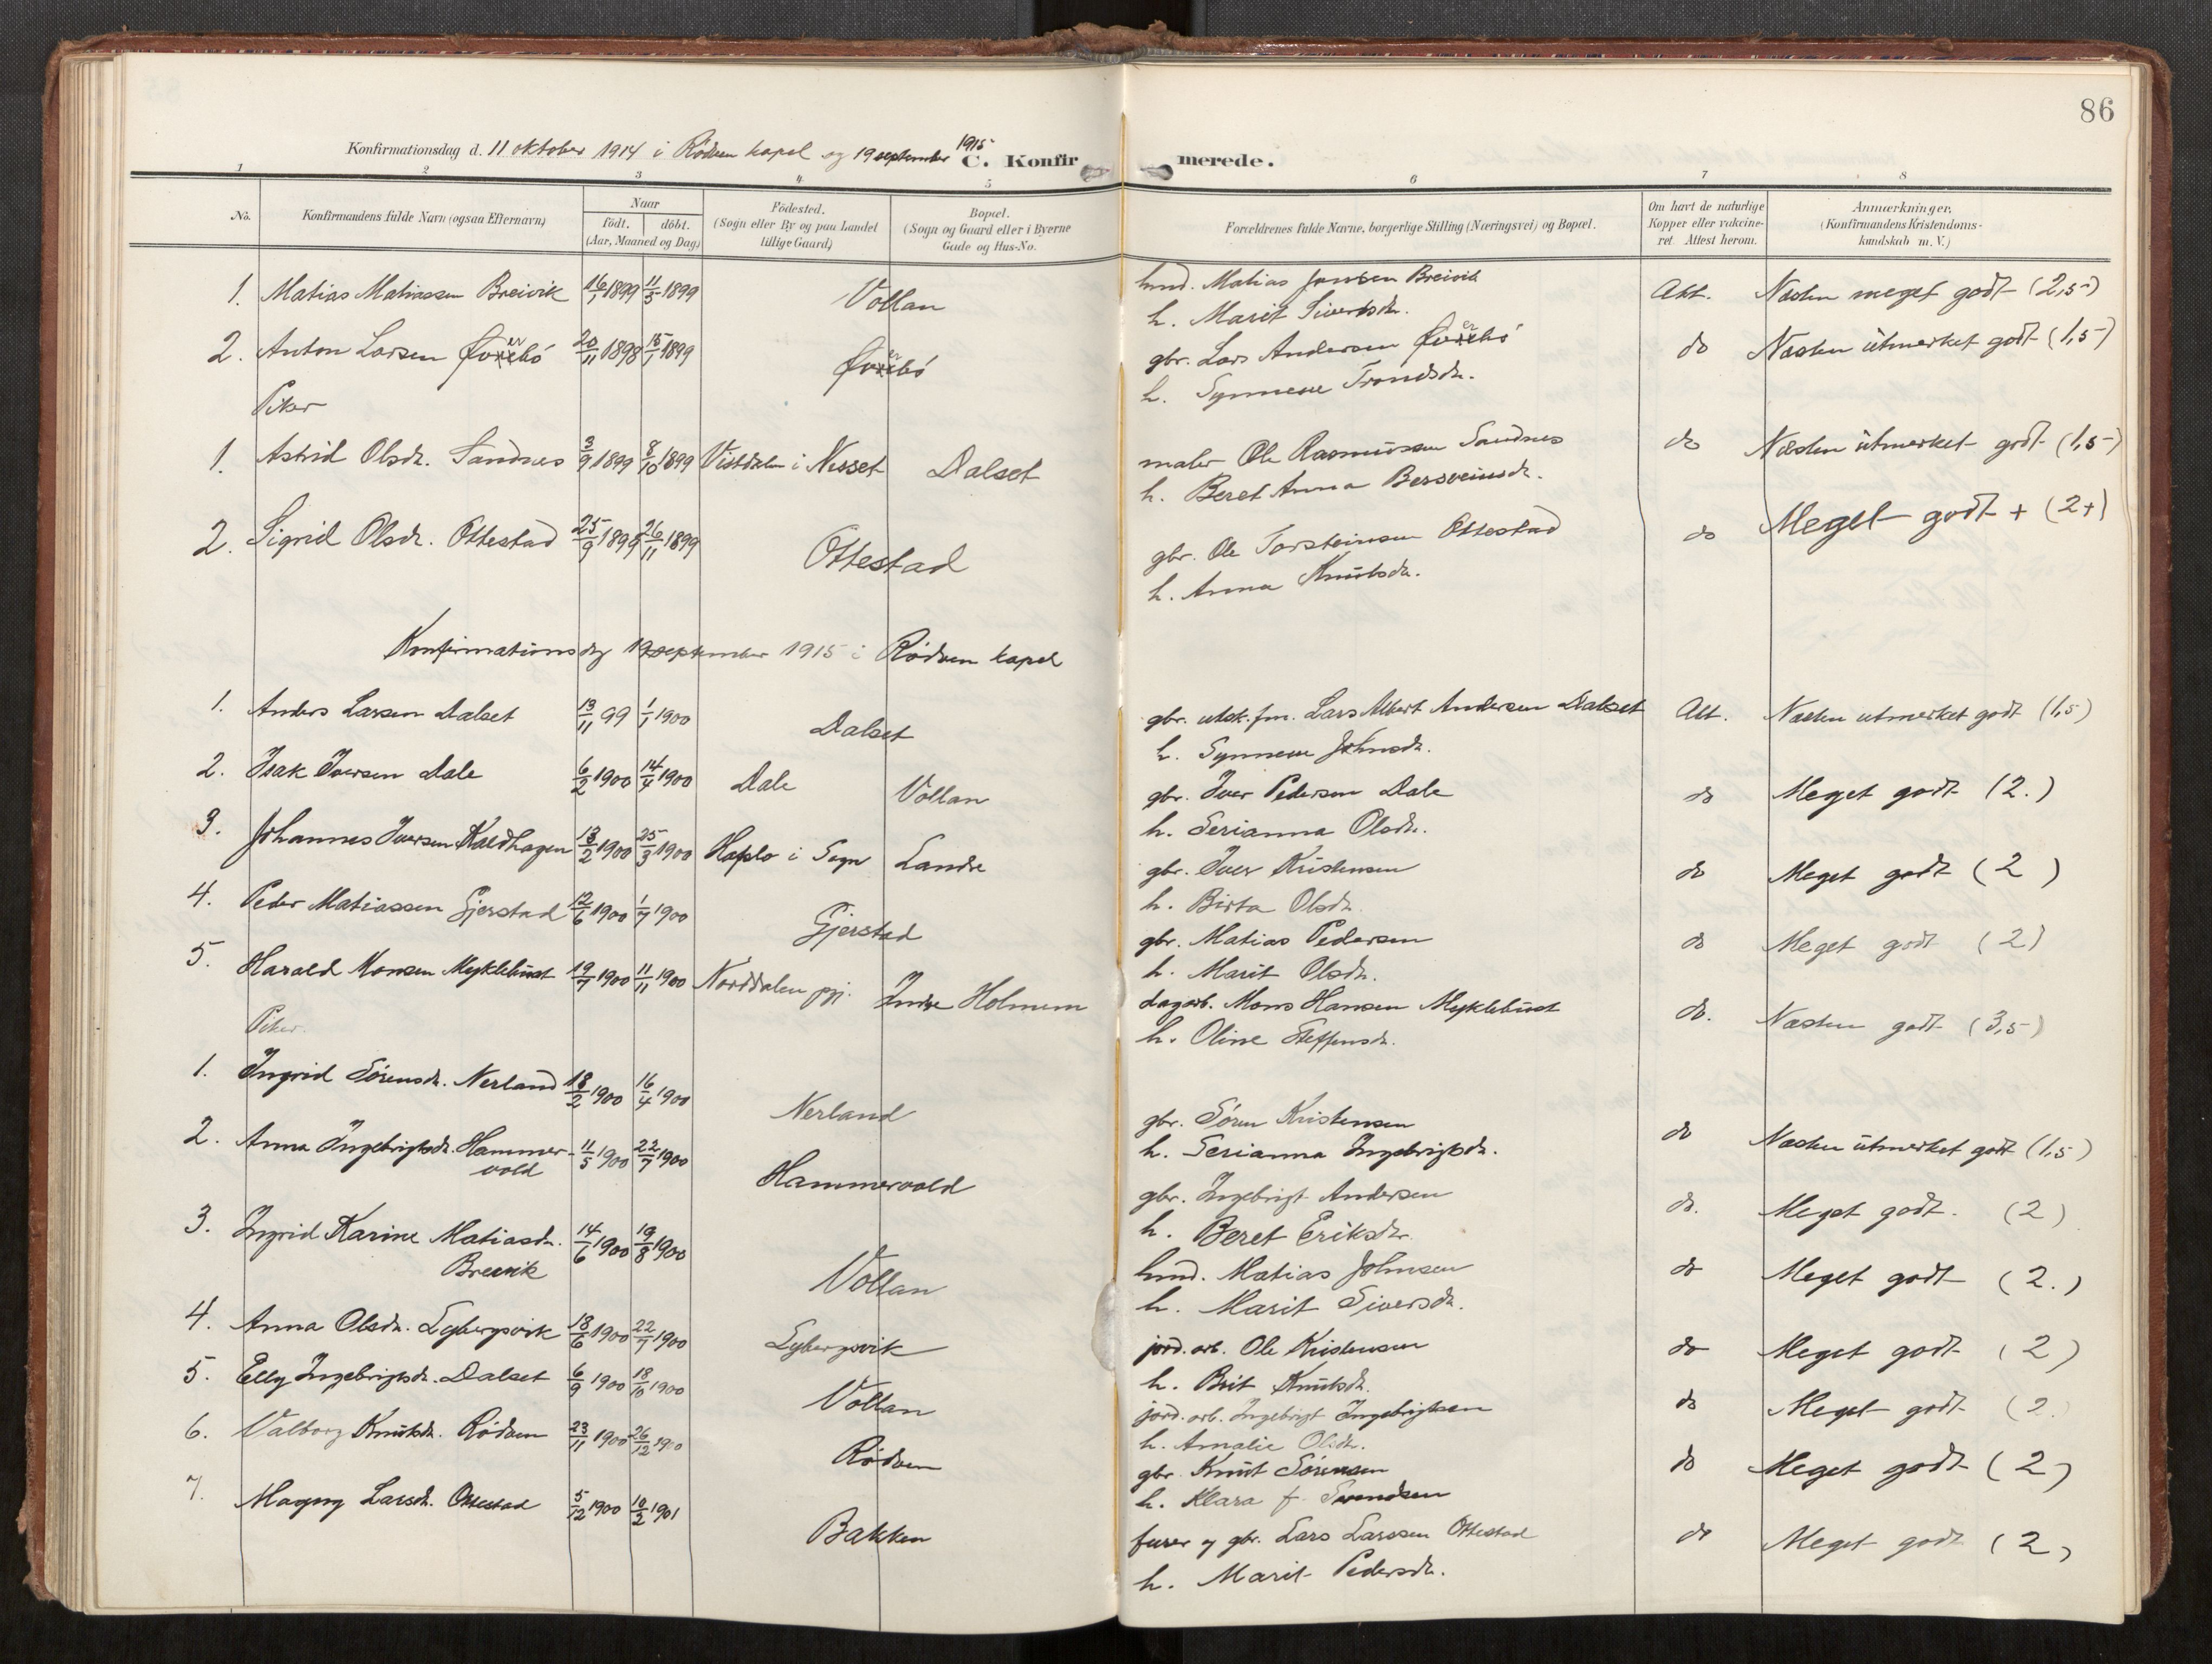 86
Konfirmationsdag d. 11 oktober 1914 i Rødven kapel og 19 september 1915
C. Konfirmerede.
1 2 3 4 5 6 7 8
No.
Konfirmandens fulde Navn (ogsaa Efternavn)
Naar
födt. döbt.
(Aar, Maaned og Dag)
Födested.
(Sogn eller By og paa Landet
tillige Gaard)
Bopæl.
(Sogn og Gaard eller i Byerne
Gade og Hus-No.
Forældrenes fulde Navne, borgerlige Stilling (Næringsvei) og Bopæl.
Om havt de naturlige
Kopper eller vakcine-
ret. Attest herom.
Anmærkninger.
(Konfirmandens Kristendoms-
kundskab m. V.)
1. Matias Matiassen Breivik 16/1 1899 11/5 1899 Vollan hmd. Matias Jonsen Breivik Att. Næsten meget godt (2,5)
h. Marit Siversdr.
2. Anton Larsen 20/11 1898 15/1 1899 gbr. Lars Andersen do Næsten utmerket godt (1,5)
h. Synneve Trondsdr.
Piker
1. Astrid Olsdr. Sandnes 3/9 1899 8/10 1899 Vistdalen i Nesset Dalset maler Ole Rasmussen Sandnes do Næsten utmerket godt (1,5)
h. Beret Anna Bersveinsdr.
2. Sigrid Olsdr. Ottestad 25/9 1899 26/11 1899 Ottestad gbr. Ole Torsteinsen Ottestad do Meget godt + (2+)
h. Anna Knutsdr.
Konfirmationsdag 19 september 1915 i Rødven kapel
1. Anders Larsen Dalset 13/11 99 1/1 1900 Dalset gbr. utsk.fm. Lars Albert Andersen Dalset Att. Næsten utmerket godt (1,5)
h. Synneve Johnsdr.
2. Isak Iversen Dale 6/2 1900 14/4 1900 Dale Vollan gbr. Iver Pedersen Dale do Meget godt (2.)
h. Serianna Olsdr.
3. Johannes Iversen Kaldhagen 13/2 1900 25/3 1900 Hafslo i Sogn Landre gbr. Iver Kristensen do Meget godt (2)
h. Birta Olsdr.
4. Peder Matiassen Gjerstad 12/6 1900 1/7 1900 Gjerstad gbr. Matias Pedersen do Meget godt (2)
h. Marit Olsdr.
5. Harald Monsen Myklebust 19/7 1900 11/11 1900 Norddalen pgj. Indre Holmem dagarb. Mons Hansen Myklebust do. Næsten godt (3,5)
h. Oline Steffensdr.
Piker.
1. Ingrid Sørensdr. Nerland 18/2 1900 16/4 1900 Nerland gbr. Søren Kristensen do Næsten utmerket godt (1,5)
h. Serianna Ingebrigtsdr.
2. Anna Ingebrigtsdr. Hammer- 11/5 1900 22/7 1900 Hammervold gbr. Ingebrigt Andersen do. Meget godt. (2)
vold
h. Beret Eriksdr.
3. Ingrid Karine Matiasdr. 14/6 1900 19/8 1900 Vollan hmd. Matias Johnsen do Meget godt (2.)
Breivik
h. Marit Siversdr.
4. Anna Olsdr. Lybergsvik 18/6 1900 22/7 1900 Lybergsvik jord.arb. Ole Kristensen do Meget godt (2)
h. Brit Knutsdr.
5. Elly Ingebrigtsdr. Dalset 6/9 1900 18/10 1900 Vollan jord.arb. Ingebrigt Ingebrigtsen do Meget godt (2.
h. Amalie Olsdr.
6. Valborg Knutsdr. Rødven 23/11 1900 26/12 1900 Rødven gbr. Knut Sørensen do Meget godt (2)
h. Klara f. Svendsen
7. Magny Larsdr. Ottestad 5/12 1900 10/2 1901 Bakken furer og gbr. Lars Larssen Ottestad do Meget godt (2)
h. Marit Pedersdr.